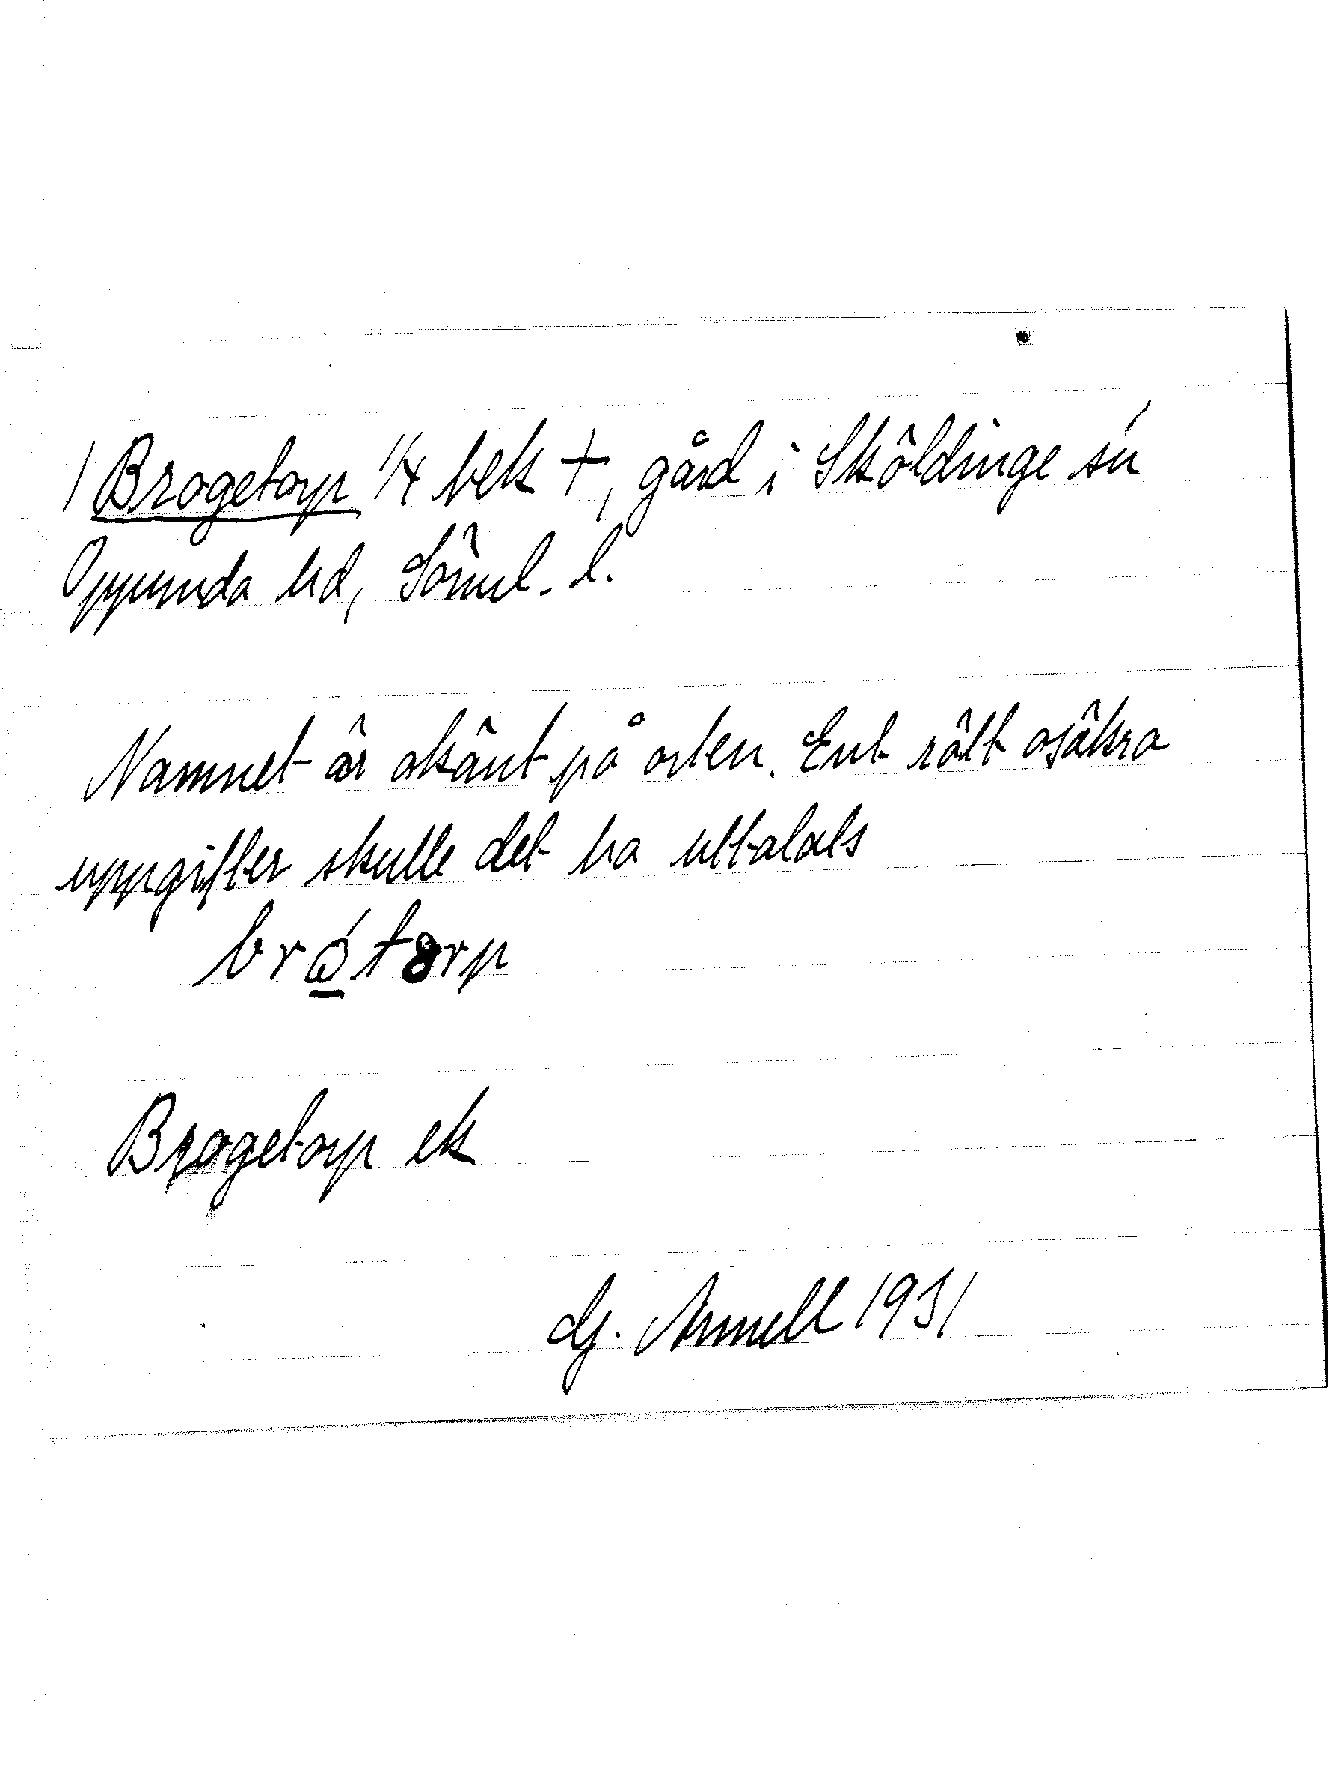 1 Brogetorp 1/4 bek +, gård i Sköldinge sn
Oppunda hd, Söml. l.
Namnet är okänt på orten. Enl rätt osäkra
uppgifter skulle det ha uttalats
brótorp
Brogetorp ek
G. Armell 1931